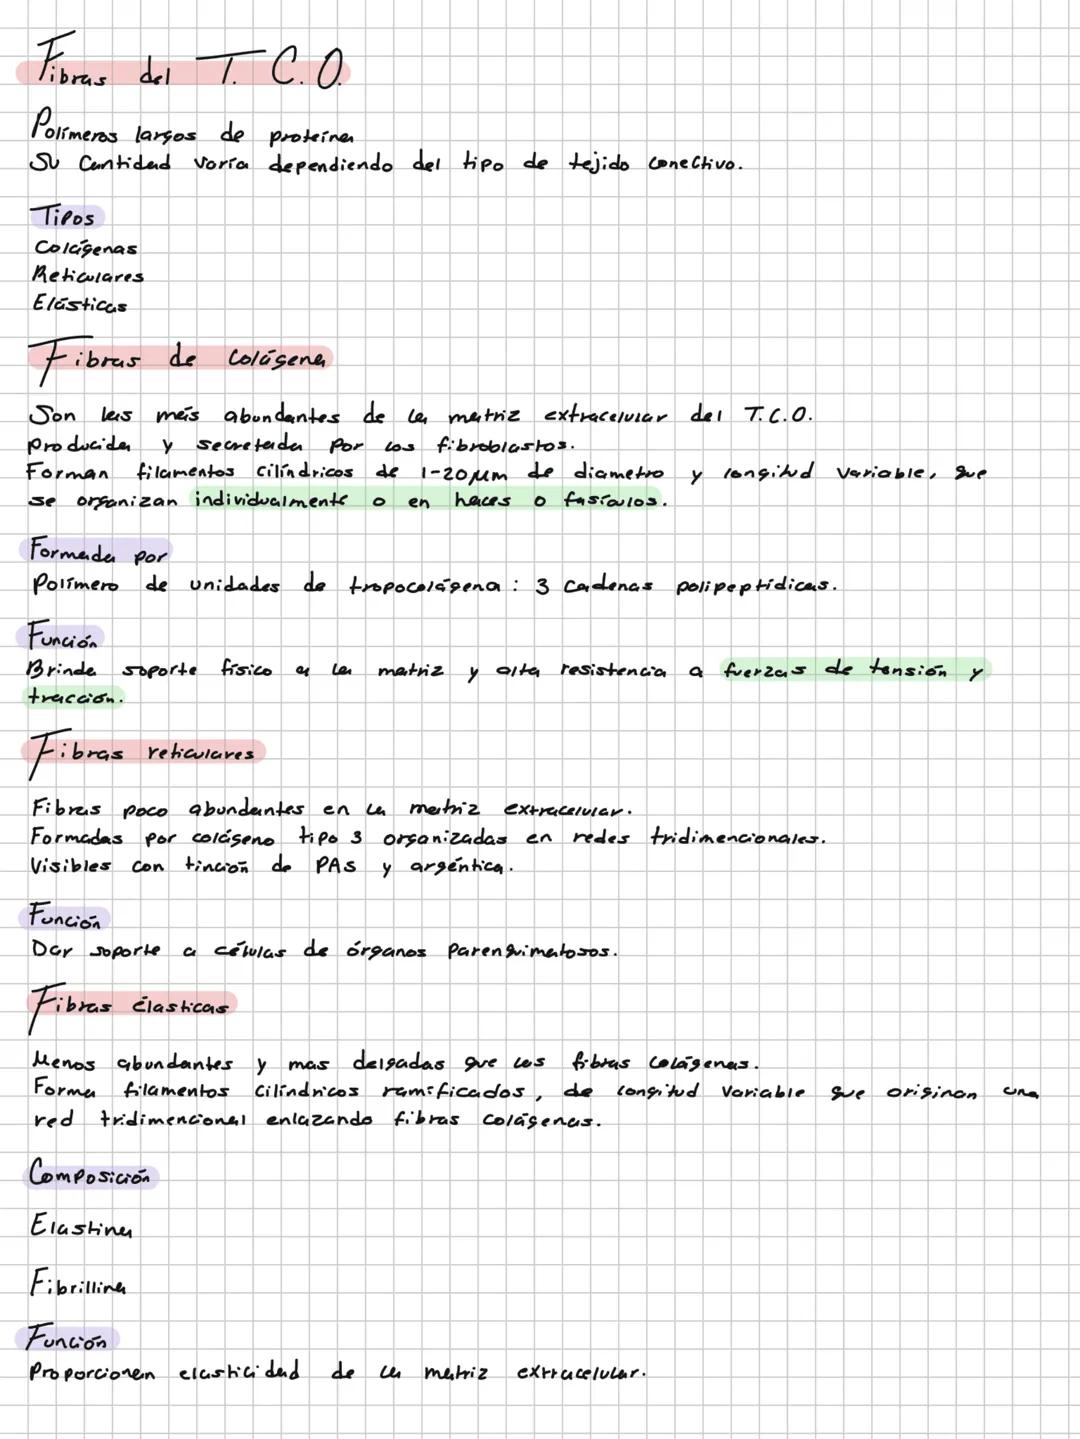 Fibras del T. C.O.
Polímeros largos de proteína
Su Cantidad varía dependiendo del tipo de tejido conectivo.
Tipos
Colágenas
Reticulares
Elásticas
Fibras de Colágena
Son las más abundantes de la matriz extracelular del T.C.O.
Producida y secretada por los fibroblastos.
Forman filamentos cilíndricos de 1-20µm de diametro y longitud variable, que
se organizan individualmente o en haces o fasículos.
Formada por
Polímero de unidades de tropocolágena: 3 cadenas polipeptídicas.
Función
Brinda soporte físico a la matriz y alta resistencia a fuerzas de tensión y
tracción.
Fibras reticulares
Fibras poco abundantes en la matriz extracelular.
Formadas por colágeno tipo 3 organizadas en redes tridimencionales.
Visibles con tinción de PAS y argéntica.
Función
Dar soporte a células de órganos parenquimatosos.
Fibras élasticas
Menos abundantes y mas delgadas que las fibras colágenas.
Forma filamentos cilíndricos ramificados, de longitud variable que originan una
red tridimencional enlazando fibras colágenas.
Composición
Elastina
Fibrillina
Función
Proporcionan elasticidad de la matriz extracelular.